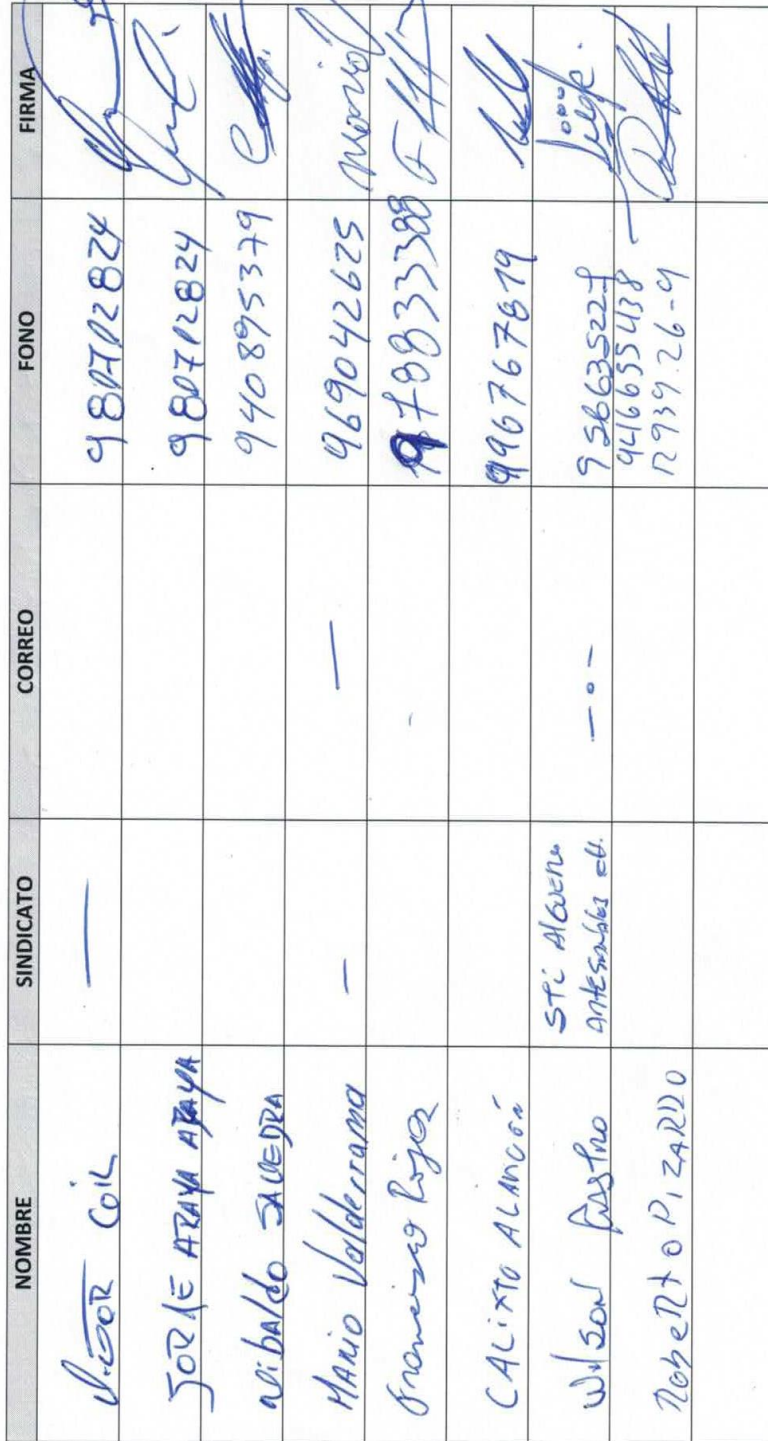 NOMBRE SINDICATO CORREO FONO FIRMA
VICTOR COIL — 980712824
JORGE ARAYA ARAYA 980712824
NIBALDO SAVEDRA 940895379
MARIO Valderrama — — 969042625 Mario
Francisco Rojas 978833388
CALIXTO ALARCÓN 996767819
Wilson Castro STI Alguero -o-
956635229
Roberto PIZARRO 946655438
12939.26-9